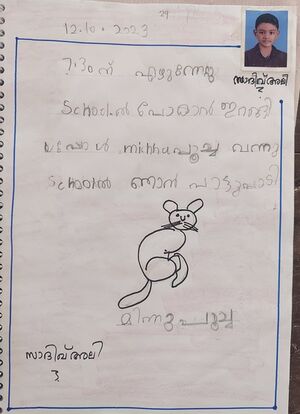 29
12.10.2023
സാദിഖ് അലി
7.30ന് എഴുന്നേറ്റു
Schoolൽ പോകാൻ ഇറങ്ങി
അപ്പോൾ minnu പൂച്ച വന്നു
Schoolൽ ഞാൻ പാട്ടുപാടി
മിന്നു പൂച്ച
സാദിഖ് അലി
3